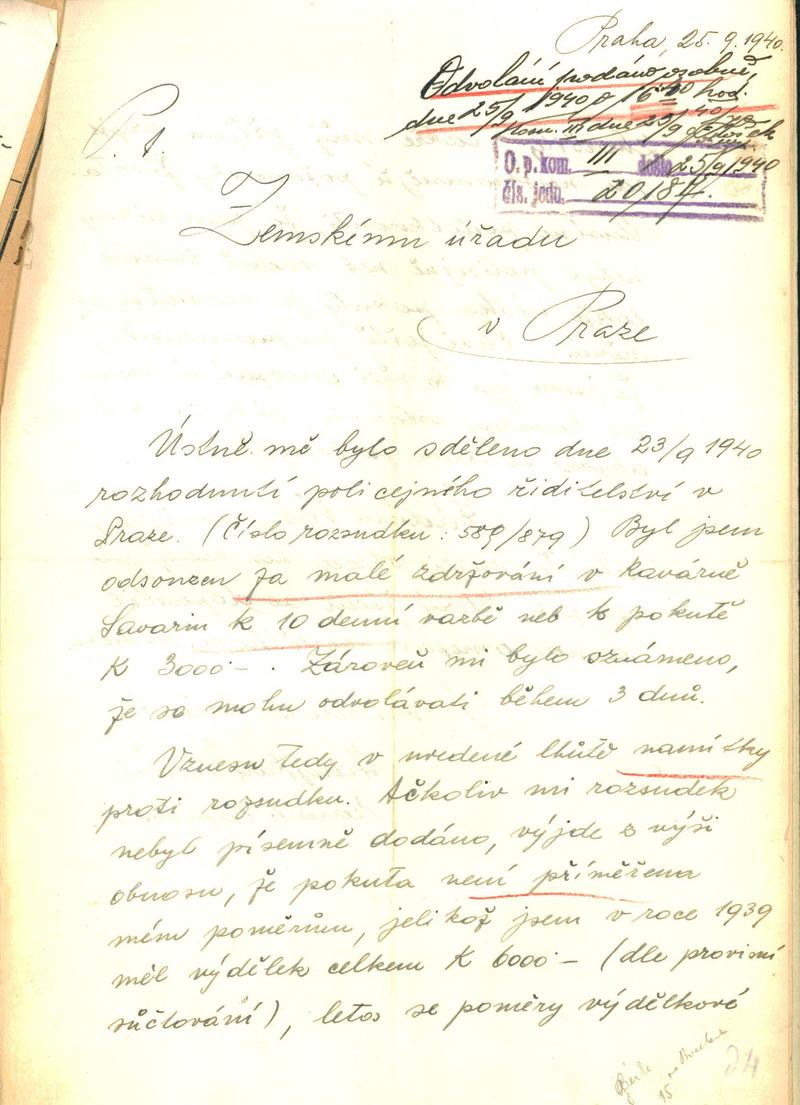 Praha, 25. 9. 1940.
Odvolání podáno osobně,
dne 25/9 1940 o 16 40 hod.
kom. III dne 25/9 40
O. p. kom. III došlo 25/9 1940
čís. jedn. 20187.
P. t.
Zemskému úřadu
v Praze
Ústně mě bylo sděleno dne 23/9 1940
rozhodnutí policejného řiditelství v
Praze. (Číslo rozsudku: 589/879) Byl jsem
odsouzen za malé zdržování v kavárně
Savarin k 10 denní vazbě neb k pokutě
K 3000·–. Zároveň mi bylo oznámeno,
že se mohu odvolávati během 3 dnů.
Vznesu tedy v uvedené lhůtě namítky
proti rozsudku. Ačkoliv mi rozsudek
nebyl písemně dodáno, výjde z výši
obnosu, že pokuta není příměřena
mém poměrům, jelikož jsem v roce 1939
měl výdělek celkem K 6000·– (dle provisní
súčtování), letos se poměry výdělkové
24